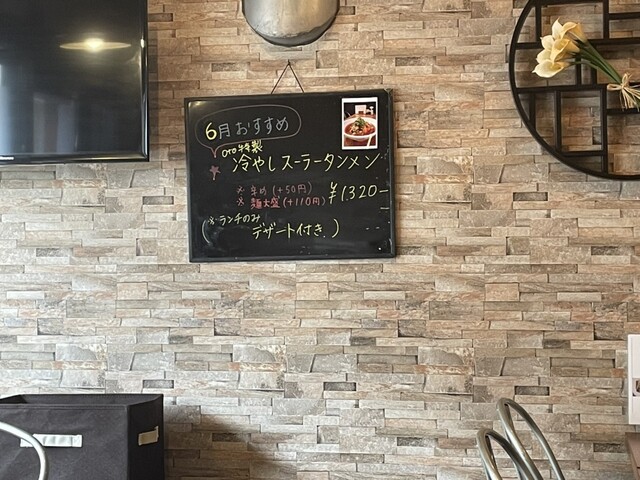 6月おすすめ
oto特製
冷やしスーラータンメン
※辛め(+50円)
¥1.320-
※麺大盛(+110円)
(※ランチのみ
デザート付き)